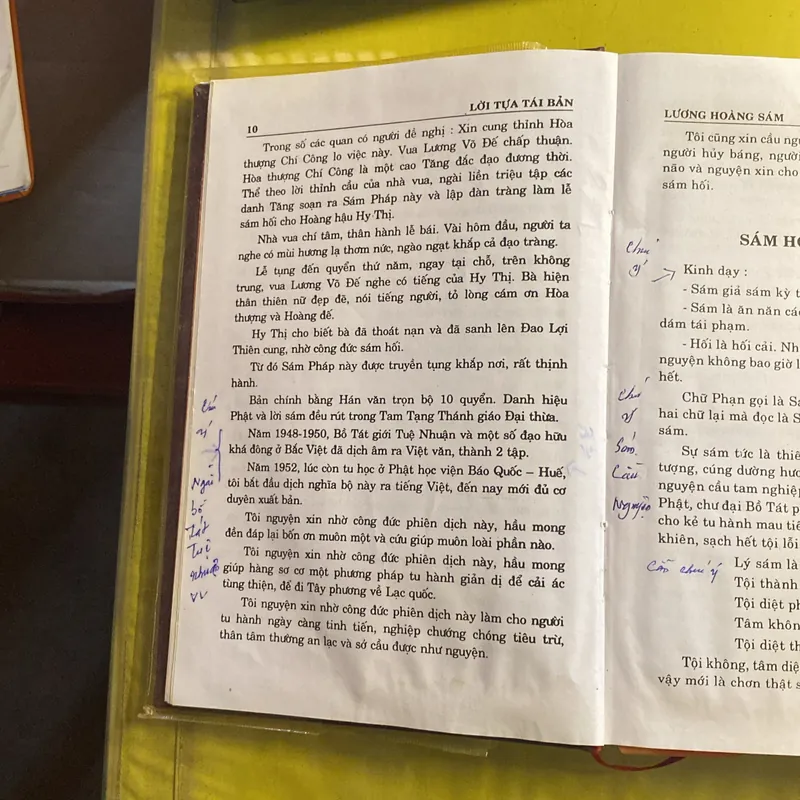 10
LỜI TỰA TÁI BẢN
Trong số các quan có người đề nghị : Xin cung thỉnh Hòa
thượng Chí Công lo việc này. Vua Lương Võ Đế chấp thuận.
Hòa thượng Chí Công là một cao Tăng đắc đạo đương thời.
Thể theo lời thỉnh cầu của nhà vua, ngài liền triệu tập các
danh Tăng soạn ra Sám Pháp này và lập đàn tràng làm lễ
sám hối cho Hoàng hậu Hy Thị.
Nhà vua chí tâm, thân hành lễ bái. Vài hôm đầu, người ta
nghe có mùi hương lạ thơm nức, ngào ngạt khắp cả đạo tràng.
Lễ tụng đến quyển thứ năm, ngay tại chỗ, trên không
trung, vua Lương Võ Đế nghe có tiếng của Hy Thị. Bà hiện
thân thiên nữ đẹp đẽ, nói tiếng người, tỏ lòng cám ơn Hòa
thượng và Hoàng đế.
Hy Thị cho biết bà đã thoát nạn và đã sanh lên Đao Lợi
Thiên cung, nhờ công đức sám hối.
Từ đó Sám Pháp này được truyền tụng khắp nơi, rất thịnh
hành.
Bản chính bằng Hán văn trọn bộ 10 quyển. Danh hiệu
Phật và lời sám đều rút trong Tam Tạng Thánh giáo Đại thừa.
Năm 1948-1950, Bồ Tát giới Tuệ Nhuận và một số đạo hữu
khá đông ở Bắc Việt đã dịch âm ra Việt văn, thành 2 tập.
Năm 1952, lúc còn tu học ở Phật học viện Báo Quốc – Huế,
tôi bắt đầu dịch nghĩa bộ này ra tiếng Việt, đến nay mới đủ cơ
duyên xuất bản.
Tôi nguyện xin nhờ công đức phiên dịch này, hầu mong
đền đáp lại bốn ơn muôn một và cứu giúp muôn loài phần nào.
Tôi nguyện xin nhờ công đức phiên dịch này, hầu mong
giúp hàng sơ cơ một phương pháp tu hành giản dị để cải ác
tùng thiện, để đi Tây phương về Lạc quốc.
Tôi nguyện xin nhờ công đức phiên dịch này làm cho người
tu hành ngày càng tinh tiến, nghiệp chướng chóng tiêu trừ,
thân tâm thường an lạc và sở cầu được như nguyện.
ý
Ngài
bồ
tát
tuệ
nhuận
LƯƠNG HOÀNG SÁM
Tôi cũng xin cầu ngu
người hủy báng, người
não và nguyện xin cho
sám hối.
SÁM HỐ
Chú
ý
Kinh dạy :
- Sám giả sám kỳ t
- Sám là ăn năn các
dám tái phạm.
- Hối là hối cải. Nh
nguyện không bao giờ l
hết.
Chú
ý
Sám
Cầu
Nguyện
Chữ Phạn gọi là Sá
hai chữ lại mà đọc là S
sám.
Sự sám tức là thiê
tượng, cúng dường hươ
nguyện cầu tam nghiệp
Phật, chư đại Bồ Tát p
cho kẻ tu hành mau tiê
khiên, sạch hết tội lỗi
Cần chú ý
Lý sám là
Tội thành
Tội diệt ph
Tâm khôn
Tội diệt th
Tội không, tâm diệ
vậy mới là chơn thật s